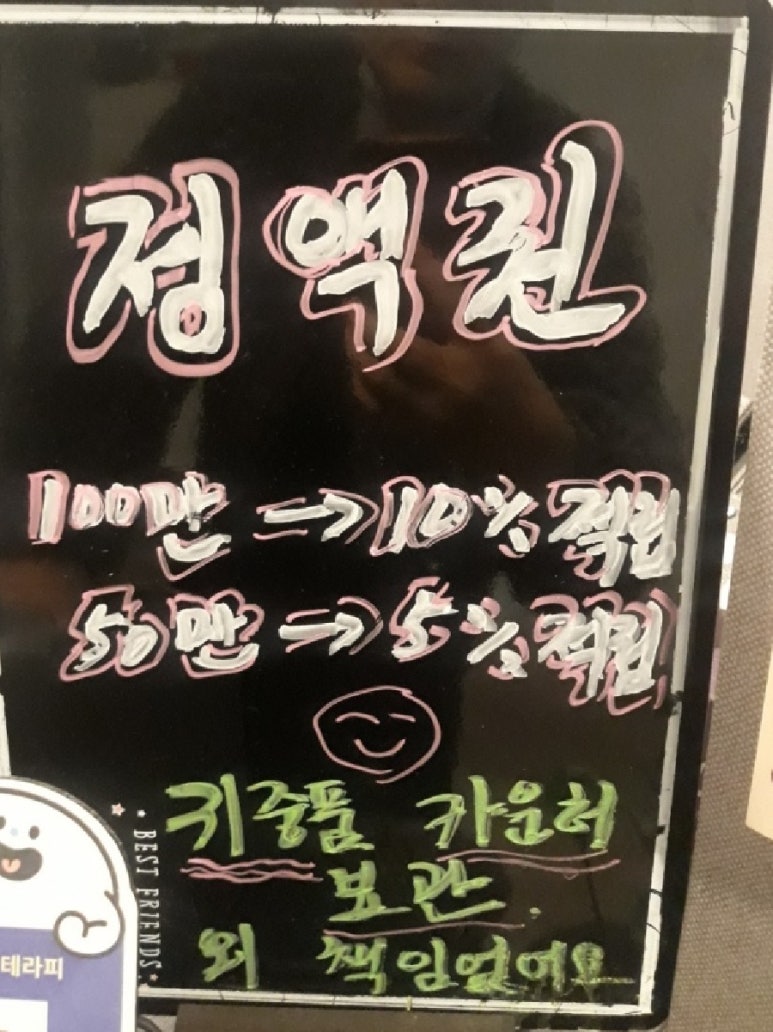 정액권
100만 => 10% 적립
50만 => 5% 적립
귀중품 카운터
보관.
외 책임없어요
BEST FRIENDS.
테라피